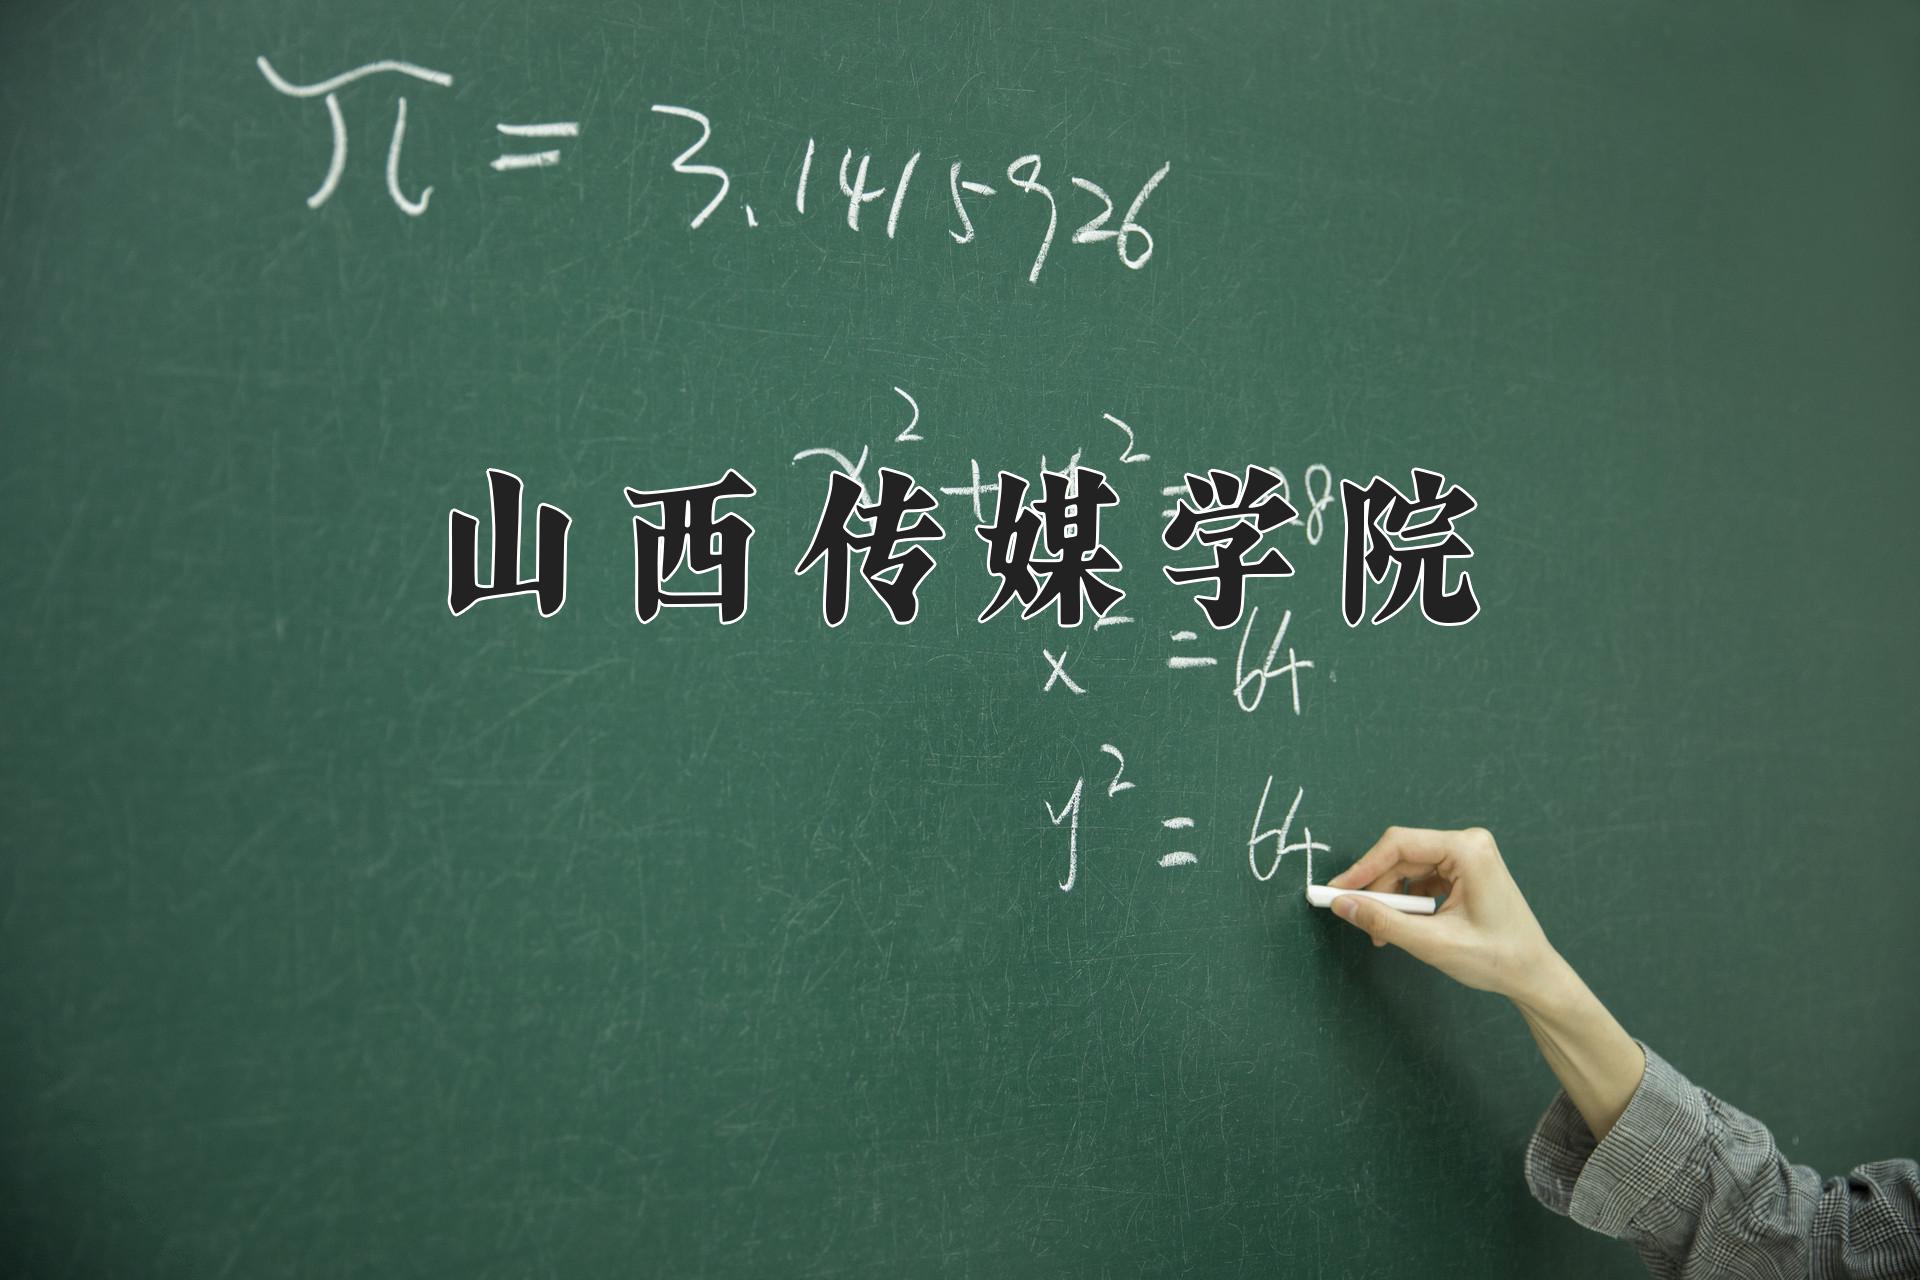 π = 3.1415926
x² + y² = 128
山西传媒学院
x² = 64
y² = 64